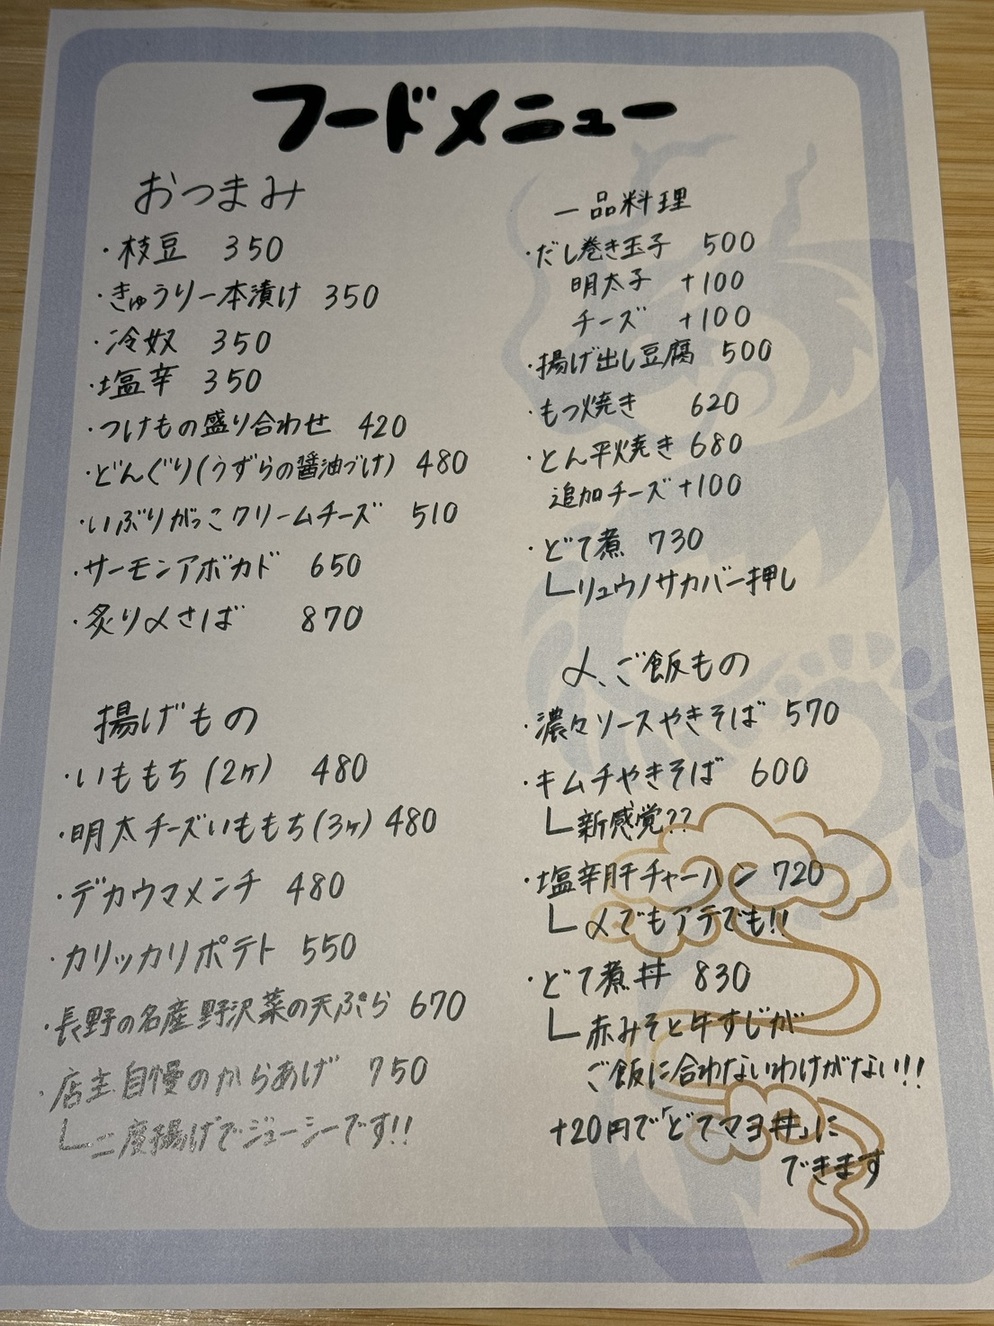 フードメニュー
おつまみ
・枝豆 350
・きゅうり一本漬け 350
・冷奴 350
・塩辛 350
・つけもの盛り合わせ 420
・どんぐり(うずらの醤油づけ) 480
・いぶりがっこクリームチーズ 510
・サーモンアボカド 650
・炙り〆さば 870
揚げもの
・いももち(2ヶ) 480
・明太チーズいももち(3ヶ) 480
・デカウマメンチ 480
・カリッカリポテト 550
・長野の名産野沢菜の天ぷら 670
・店主自慢のからあげ 750
└二度揚げでジューシーです!!
一品料理
・だし巻き玉子 500
明太子 +100
チーズ +100
・揚げ出し豆腐 500
・もつ焼き 620
・とん平焼き 680
追加チーズ +100
・どて煮 730
└リュウノサカバー押し
〆、ご飯もの
・濃々ソースやきそば 570
・キムチやきそば 600
└新感覚??
・塩辛肝チャーハン 720
└〆でもアテでも!!
・どて煮丼 830
└赤みそと牛すじが
ご飯に合わないわけがない!!!
+20円で「どてマヨ丼」に
できます